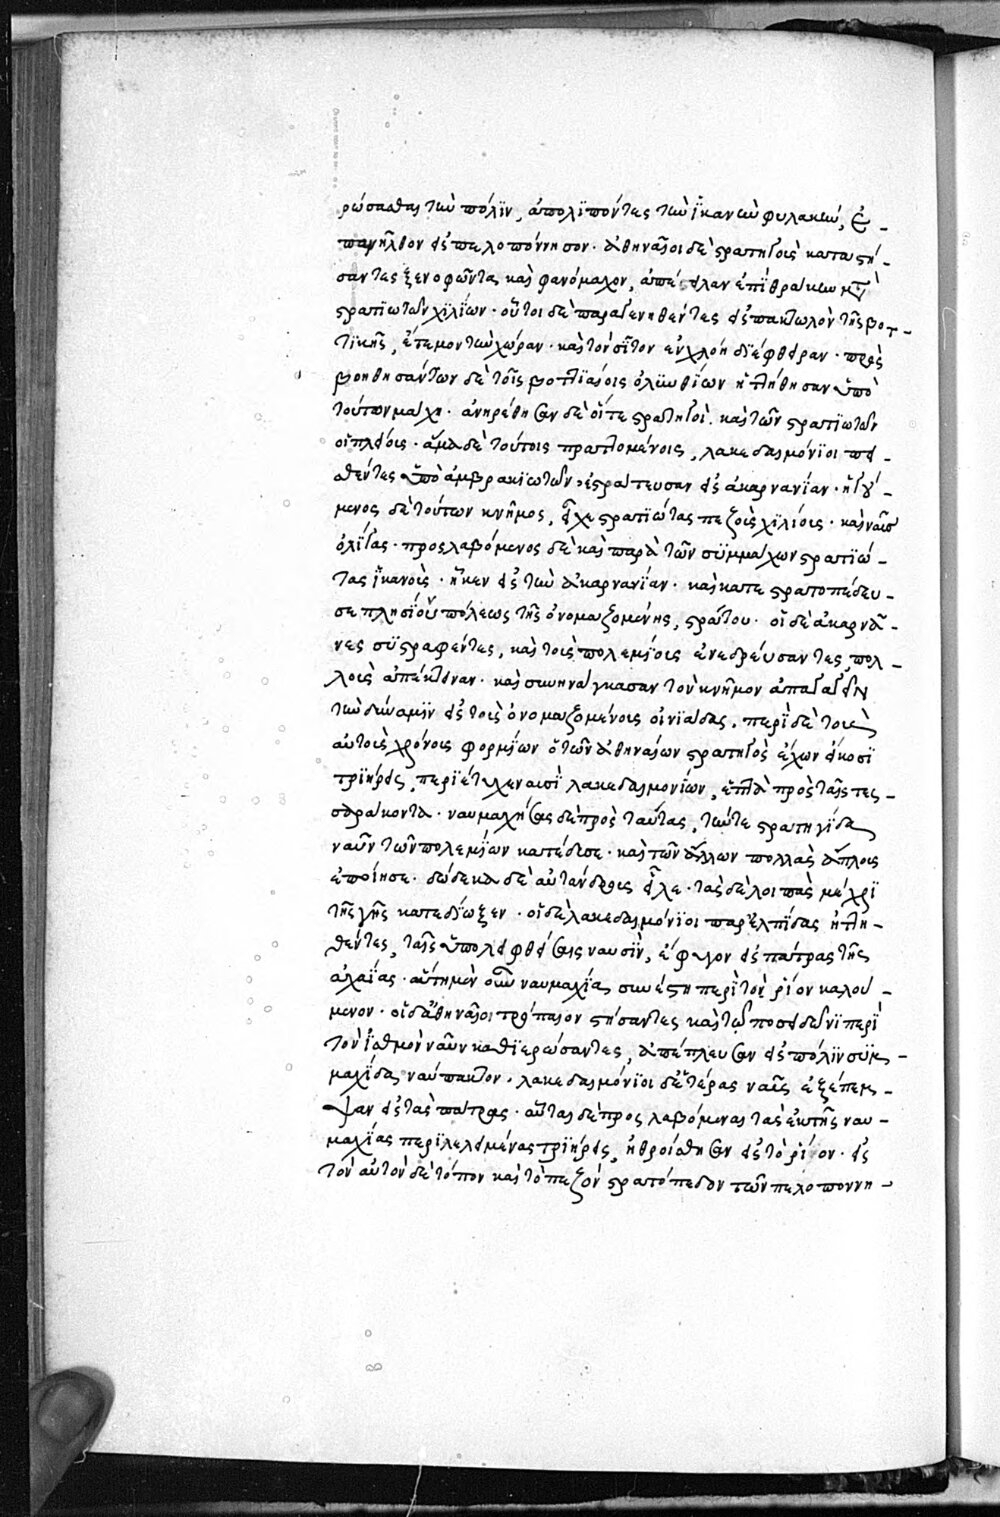 ρώσασθαι τὴν πόλϊν, ἀπολϊπόντες τὴν ἱκανὴν φυλακὴν, ἐ-
πανῆλθον εἰς πελοπόννησον· ἀθηναῖοι δὲ στρατηγοὺς καταστή-
σαντες ξενοφῶντα καὶ φανόμαχον, ἀπέστειλαν ἐπὶ θράκην μετὰ
στρατϊωτῶν χϊλΐων· οὗτοι δὲ παραγενηθέντες εἰς πακτωλὸν τῆς βοτ-
τϊκῆς, ἔτεμον τὴν χώραν· καὶ τὸν σῖτον ἐν χλόη δϊέφθειραν· προσ
βοηθησάντων δὲ τοῖς βοττϊαίοις ὀλυνθίων ἡττήθησαν ὑπὸ
τούτων μάχη· ἀνηρέθησαν δὲ οἵ τε στρατηγοὶ. καὶ τῶν στρατϊωτῶν
οἱ πλείους· ἅμα δὲ τούτοις πραττομένοις, λακεδαιμόνϊοι πει-
σθέντες ὑπὸ ἀμβρακϊωτῶν, ἐστράτευσαν εἰς ἀκαρνανΐαν· ἡγού-
μενος δὲ τούτων κνῆμος, εἶχε στρατϊώτας πεζοὺς χϊλίους· καὶ ναῦς
ὀλΐγας· προσλαβόμενος δὲ καὶ παρὰ τῶν συμμάχων στρατϊώ-
τας ἱκανοὺς· ἧκεν εἰς τὴν ἀκαρνανΐαν· καὶ κατεστρατοπέδευ-
σε πλησΐον πόλεως τῆς ὀνομαζομένης, στράτου· οἱ δὲ ἀκαρνᾶ-
νες συστραφέντες, καὶ τοὺς πολεμΐους ἐνεδρεύσαντες, πολ-
λοὺς ἀπέκτειναν· καὶ συνηνάγκασαν τὸν κνῆμον ἀπαγαγεῖν
τὴν δύναμϊν εἰς τοὺς ὀνομαζομένους οἰνϊάδας. περὶ δὲ τοὺς
αὐτοὺς χρόνους φορμΐων ὁ τῶν ἀθηναίων στρατηγὸς ἔχων εἴκοσϊ
τρϊήρεις, περϊέτυχε ναυσὶ λακεδαιμονΐων, ἑπτὰ πρὸς ταῖς τεσ-
σαράκοντα· ναυμαχήσας δὲ πρὸς ταύτας, τήν τε στρατηγΐδα
ναῦν τῶν πολεμΐων κατέδυσε· καὶ τῶν ἄλλων πολλὰς ἄπλους
ἐποίησε· δώδεκα δὲ αὐτάνδρους εἷλε· τὰς δὲ λοιπὰς μέχρϊ
τῆς γῆς κατεδΐωξεν· οἱ δὲ λακεδαιμόνϊοι παρ' ἐλπΐδας ἡττη-
θέντες, ταῖς ὑπολειφθείσαις ναυσὶν, ἔφυγον εἰς πάτρας τῆς
ἀχαΐας· αὕτη μὲν οὖν ναυμαχΐας συνέστη περὶ τὸν ῥΐον καλού-
μενον· οἱ δ' ἀθηναῖοι τρόπαιον στήσαντες καὶ τῶ ποσειδῶνϊ περὶ
τὸν ἰσθμὸν ναῦν καθϊερώσαντες, ἀπέπλευσαν εἰς πόλϊν συμ-
μαχΐδα ναύπακτον· λακεδαιμόνϊοι δ' ἑτέρας ναῦς ἐξέπεμ-
ψαν εἰς τὰς πάτρας· αὗται δὲ προσλαβόμεναι τὰς ἐκ τῆς ναυ-
μαχΐας περϊλελειμένας τρϊήρεις, ἠθροίσθησαν εἰς τὸ ῥΐον· εἰς
τὸν αὐτὸν δὲ τόπον καὶ τὸ πεζὸν στρατόπεδον τῶν πελοποννη-